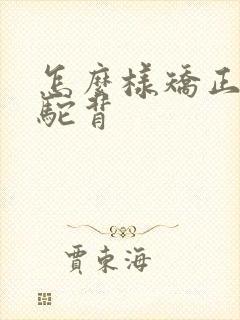 怎麼樣矯正
駝背
賈東海